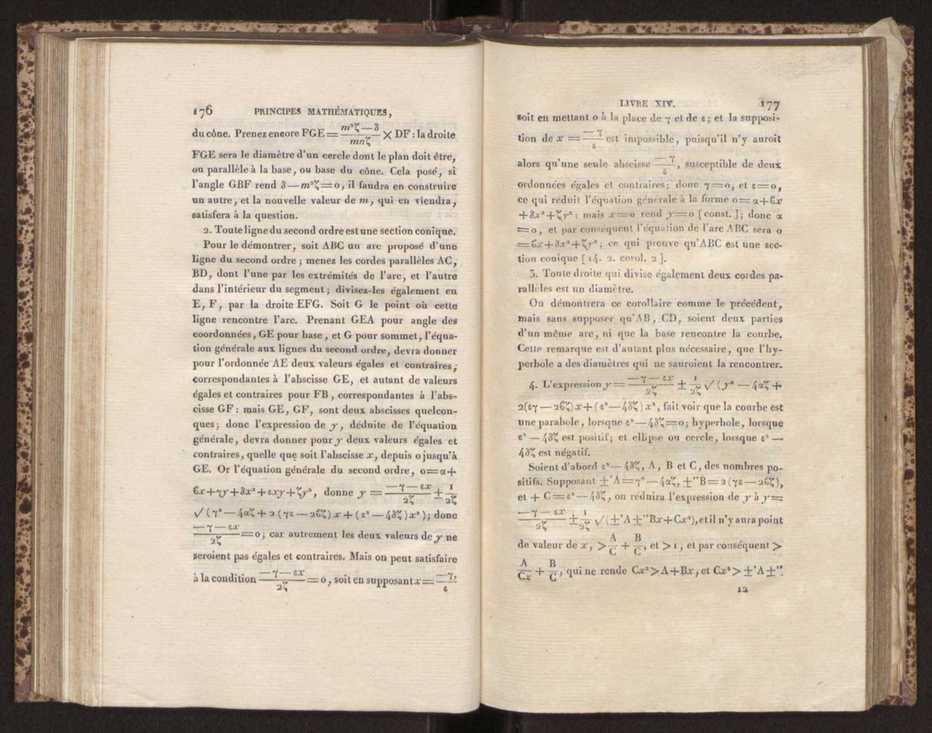 176 PRINCIPES MATHÉMATIQUES,
du cône. Prenez encore FGE = (m²ζ — δ)/(mnζ) × DF : la droite
FGE sera le diamètre d'un cercle dont le plan doit être,
ou parallèle à la base, ou base du cône. Cela posé, si
l'angle GBF rend δ — m²ζ = 0, il faudra en construire
un autre, et la nouvelle valeur de m, qui en viendra,
satisfera à la question.
2. Toute ligne du second ordre est une section conique.
Pour le démontrer, soit ABC un arc proposé d'une
ligne du second ordre ; menez les cordes parallèles AC,
BD, dont l'une par les extrémités de l'arc, et l'autre
dans l'intérieur du segment ; divisez-les également en
E, F, par la droite EFG. Soit G le point où cette
ligne rencontre l'arc. Prenant GEA pour angle des
coordonnées, GE pour base, et G pour sommet, l'équa-
tion générale aux lignes du second ordre, devra donner
pour l'ordonnée AE deux valeurs égales et contraires,
correspondantes à l'abscisse GE, et autant de valeurs
égales et contraires pour FB, correspondantes à l'abs-
cisse GF : mais GE, GF, sont deux abscisses quelcon-
ques ; donc l'expression de y, déduite de l'équation
générale, devra donner pour y deux valeurs égales et
contraires, quelle que soit l'abscisse x, depuis 0 jusqu'à
GE. Or l'équation générale du second ordre, 0 = α +
ϐx + γy + δx² + εxy + ζy², donne y = (— γ — εx)/2ζ ± 1/2ζ
√(γ² — 4αζ + 2(γε — 2ϐζ)x + (ε² — 4δζ)x²) ; donc
(— γ — εx)/2ζ = 0 ; car autrement les deux valeurs de y ne
seroient pas égales et contraires. Mais on peut satisfaire
à la condition (— γ — εx)/2ζ = 0, soit en supposant x = — γ/ε,
LIVRE XIV. 177
soit en mettant 0 à la place de γ et de ε ; et la supposi-
tion de x = — γ/ε est impossible, puisqu'il n'y auroit
alors qu'une seule abscisse — γ/ε, susceptible de deux
ordonnées égales et contraires ; donc γ = 0, et ε = 0,
ce qui réduit l'équation générale à la forme 0 = α + ϐx
+ δx² + ζy² : mais x = 0 rend y = 0 [const.] ; donc α
= 0, et par conséquent l'équation de l'arc ABC sera 0
= ϐx + δx² + ζy² ; ce qui prouve qu'ABC est une sec-
tion conique [14. 2. corol. 2].
3. Toute droite qui divise également deux cordes pa-
rallèles est un diamètre.
On démontrera ce corollaire comme le précédent,
mais sans supposer qu'AB, CD, soient deux parties
d'un même arc, ni que la base rencontre la courbe.
Cette remarque est d'autant plus nécessaire, que l'hy-
perbole a des diamètres qui ne sauroient la rencontrer.
4. L'expression y = (— γ — εx)/2ζ ± 1/2ζ √(γ² — 4αζ +
2(εγ — 2ϐζ)x + (ε² — 4δζ)x², fait voir que la courbe est
une parabole, lorsque ε² — 4δζ = 0 ; hyperbole, lorsque
ε² — 4δζ est positif ; et ellipse ou cercle, lorsque ε² —
4δζ est négatif.
Soient d'abord ε² — 4δζ, A, B et C, des nombres po-
sitifs. Supposant ±'A = γ² — 4αζ, ±"B = 2(γε — 2ϐζ),
et + C = ε² — 4δζ, on réduira l'expression de y à y =
(— γ — εx)/2ζ ± 1/2ζ √(±'A ±"Bx + Cx²), et il n'y aura point
de valeur de x, > A/C + B/C, et > 1, et par conséquent >
A/Cx + B/C, qui ne rende Cx² > A + Bx, et Cx² > ±'A ±"
12